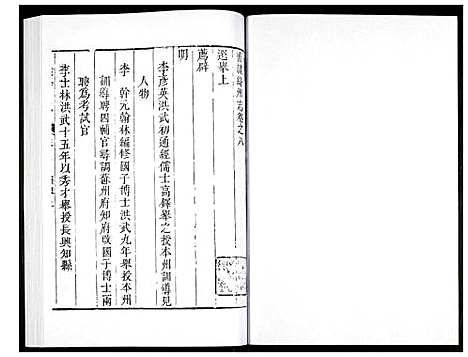 州志卷之八
選舉上
薦辟
明
李彥英洪武初通經儒士高鐸舉之授本州訓導見
人物
李 幹元翰林編修國子博士洪武九年舉授本州
訓導聘四輔官尋調蘇州府知府改國子博士兩
聘為考試官
李士林洪武十五年以秀才舉授長興知縣